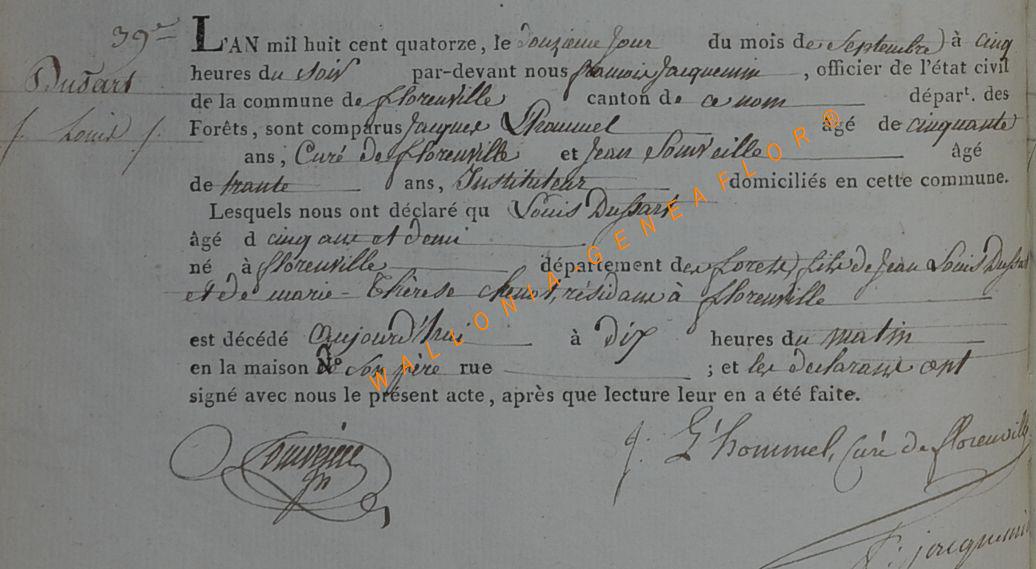 39e
Dussart
Louis
L'AN mil huit cent quatorze, le douzieme jour du mois de Septembre à cinq
heures du Soir par-devant nous francois Jacquemin, officier de l'état civil
de la commune de florenville canton de ce nom départ. des
Forêts, sont comparus Jacques L'hommel âgé de cinquante
ans, Curé de florenville et Jean Souveille âgé
de trante ans, Instituteur domiciliés en cette commune.
Lesquels nous ont déclaré qu Louis Dussart
âgé d cinq ans et demi
né à florenville département des forets, fils de Jean Louis Dussart
et de marie-Thérese résidans à florenville
est décédé aujourd'hui à dix heures du matin
en la maison de Son père rue ; et les declarans ont
signé avec nous le présent acte, après que lecture leur en a été faite.
J. L'hommel, Curé de florenville
F. jacquemin
WALLONIA-GENEAFLOR®